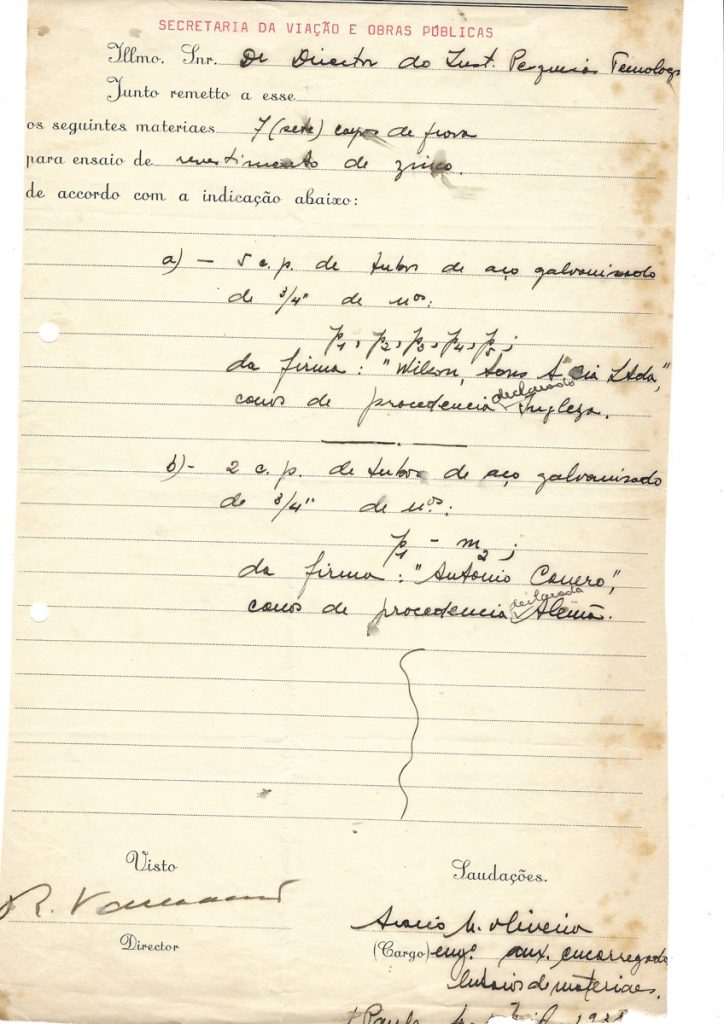 SECRETARIA DA VIAÇÃO E OBRAS PÚBLICAS
Illmo. Snr. Dr Director do Inst. Pesquisas Tecnolog
Junto remetto a esse
os seguintes materiaes 7 (sete) corpos de prova
para ensaio de revestimento de zinco.
de accordo com a indicação abaixo:
a) - 5 c. p. de tubos de aço galvanisado
de 3/4" de nos:
p1, p2, p3, p4, p5;
da firma: "Wilson, Sons & Cia Ltda,"
canos de procedencia declarada Ingleza.
b) - 2 c. p. de tubos de aço galvanisado
de 3/4" de nos:
p1 - m2;
da firma: "Antonio",
canos de procedencia declarada Alemã.
Visto
Saudações.
R.
Director
M. Oliveira
(Cargo) engo. aux. encarregado
Ensaios de materiaes.
S. Paulo